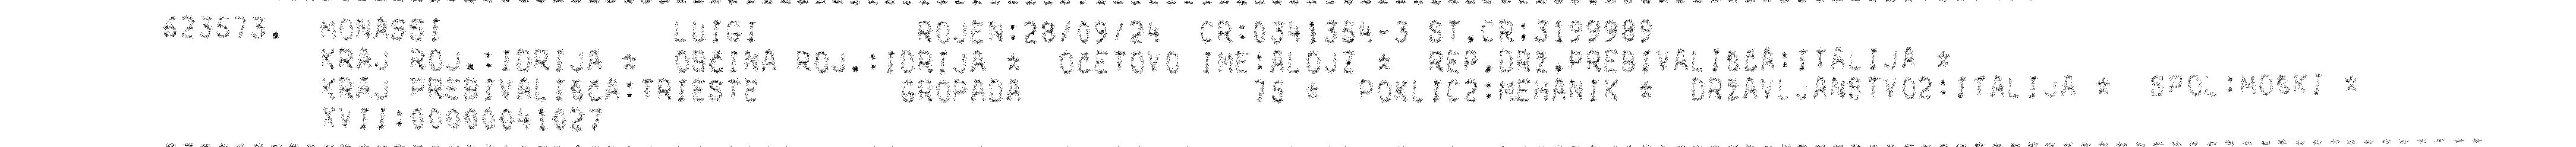 623573. MONASSI LUIGI ROJEN:28/09/24 CR:0341354-3 ST.CR:3199989
KRAJ ROJ.:IDRIJA * OBČINA ROJ.:IDRIJA * OČETOVO IME:ALOJZ * REP.DRŽ.PREBIVALIŠČA:ITALIJA *
KRAJ PREBIVALIŠČA:TRIESTE GROPADA 75 * POKLIC2:MEHANIK * DRŽAVLJANSTVO2:ITALIJA * SPOL:MOŠKI *
XVII:00000041027